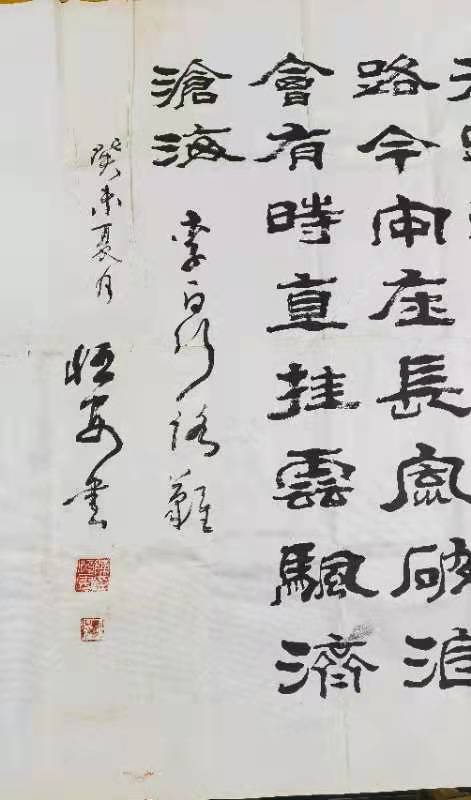 路今安在長風破浪
會有時直挂雲颿濟
滄海
李白行路難
癸未夏月 安書